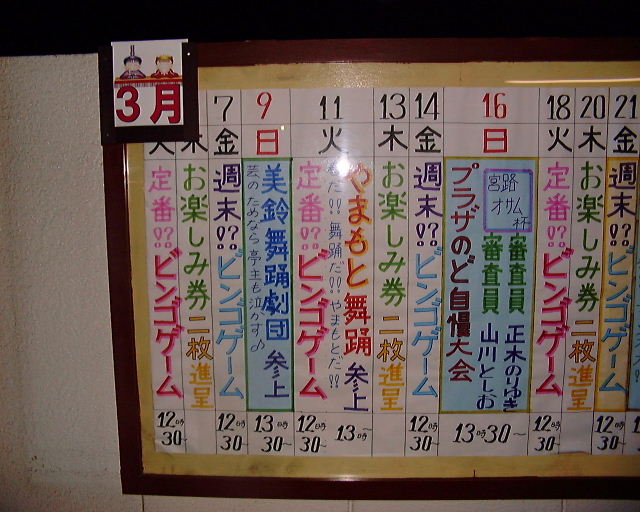 3月
7
9
11
13
14
16
18
20
21
火
木
金
日
火
木
金
日
火
木
金
定番!?
ビンゴゲーム
12時30~
お楽しみ券
二枚進呈
週末!?
ビンゴゲーム
12時30~
美鈴舞踊劇団 参上
芸のためなら亭主も泣かす♪
13時30~
定番!?
ビンゴゲーム
12時30~
やまもと舞踊 参上
だ!!舞踊だ!!やまもとだ!!
13時~
お楽しみ券
二枚進呈
週末!?
ビンゴゲーム
12時30~
宮路オサム杯
プラザのど自慢大会
審査員 正木のりゆき
審査員 山川としお
13時30~
定番!?
ビンゴゲーム
12時30~
お楽しみ券
二枚進呈
週末!?
ビンゴゲーム
12時30~